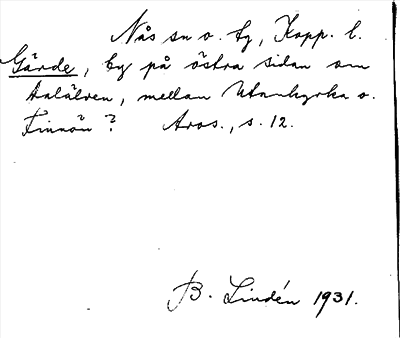 Nås sn o. tg, Kopp. l.
Gärde, by på östra sidan om
Dalälven, mellan Utanhyrka o.
Finnön? Aros., s. 12.
B. Lindén 1931.